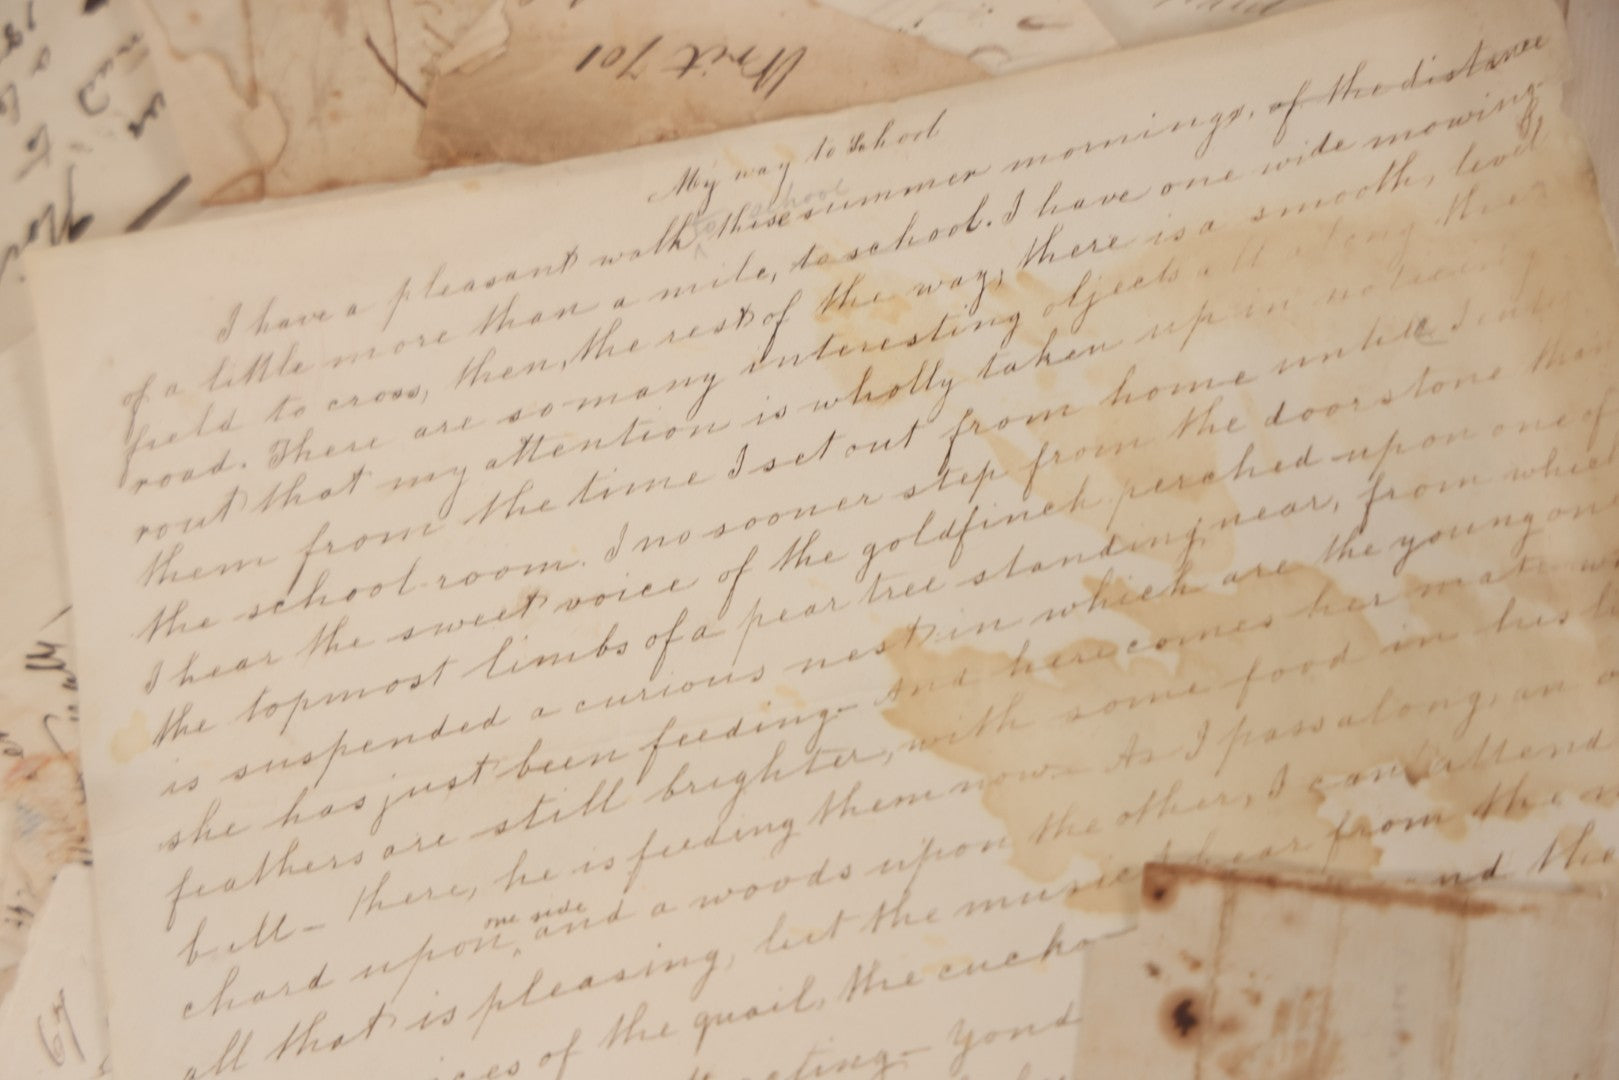 Writ 701
My way to School
to school
I have a pleasant walk these summer mornings, of the distance
of a little more than a mile, to school. I have one wide mowing
field to cross, then, the rest of the way, there is a smooth, level
road. There are so many interesting objects all along the
rout that my attention is wholly taken up in noticing
them from the time I set out from home untill I
the school-room. I no sooner step from the doorstone than
I hear the sweet voice of the goldfinch perched upon one of
the topmost limbs of a pear tree standing near, from which
is suspended a curious nest in which are the young
she has just been feeding— And here comes her mate
feathers are still brighter, with some food in his
bill— there, he is feeding them now— As I pass along, an
one side
chard upon and a woods upon the other, I can attend
all that is pleasing, but the music I hear from the
of the quail, the cuckoo and the
Yond